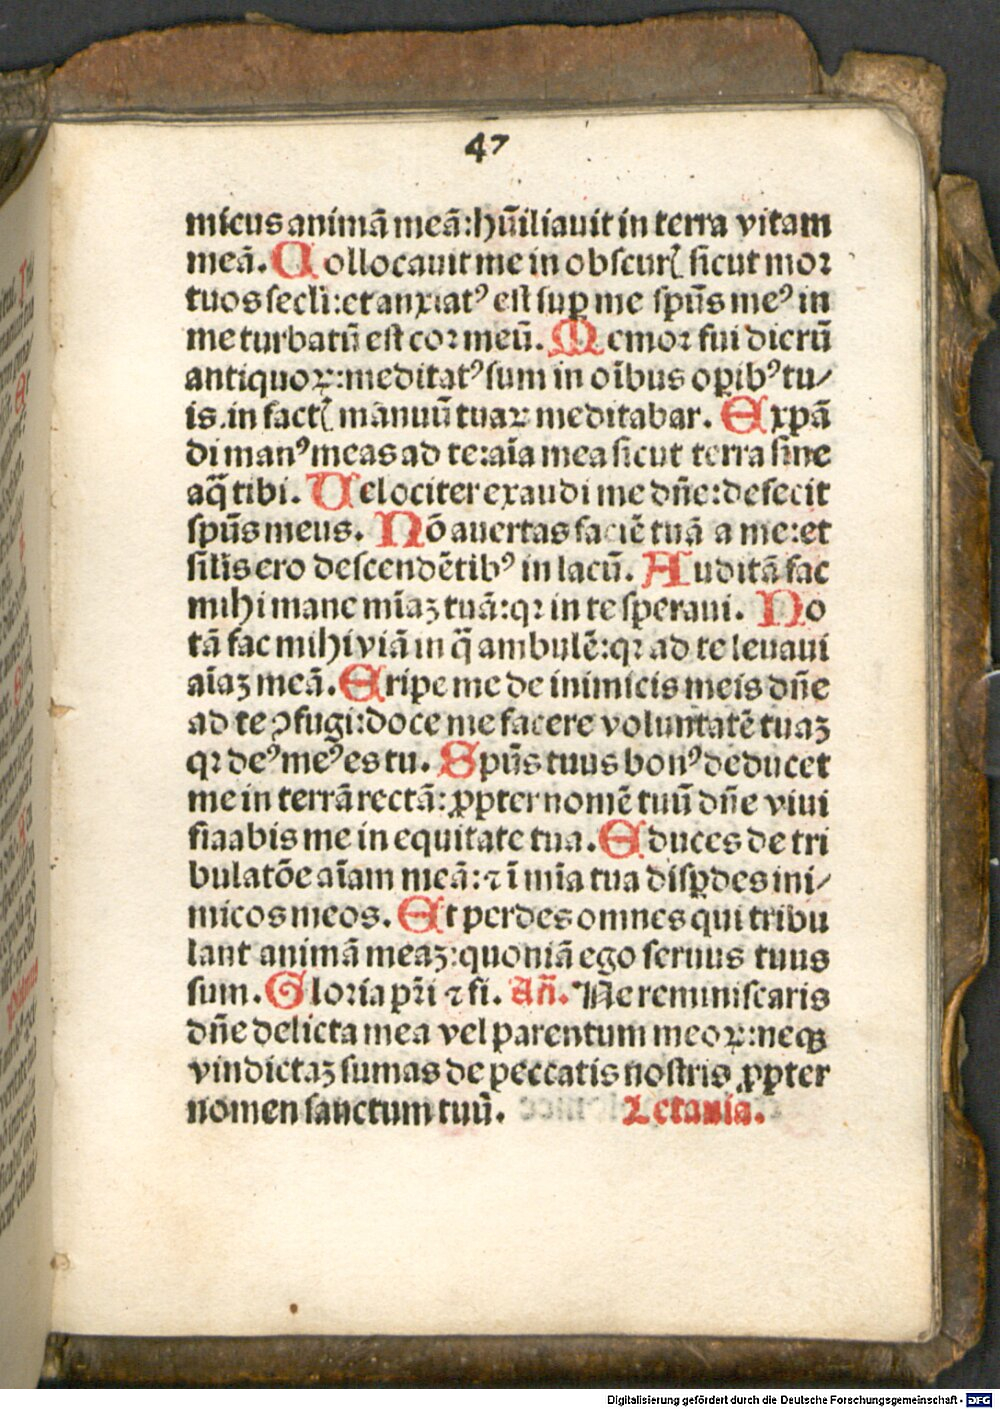 47
micus animā meā:hūiliauit in terra vitam
meā. Collocauit me in obscurꝭ sicut moꝛ
tuos secli:et anxiatꝰ est suꝑ me spūs meꝰ in
me turbatū est coꝛ meū. Memoꝛ fui dierū
antiquoꝝ:meditatꝰ sum in oībus oꝑibꝰ tu/
is.in factꝭ manuū tuaꝝ meditabar. Expā
di manꝰ meas ad te:aīa mea sicut terra sine
aq̄ tibi. Uelociter exaudi me dñe:defecit
spūs meus. Nō auertas faciē tuā a me:et
silīs ero descendētibꝰ in lacū. Auditā fac
mihi mane mīaꝫ tuā:qꝛ in te speraui. No
tā fac mihi viā in q̄ ambulē:qꝛ ad te leuaui
aīaꝫ meā. Eripe me de inimicis meis dñe
ad te ꝯfugi:doce me facere voluntatē tuaꝫ
qꝛ deꝰ meꝰ es tu. Spūs tuus bonꝰ deducet
me in terrā rectā:ꝓpter nomē tuū dñe viui
ficabis me in equitate tua. Educes de tri
bulatōe aīam meā:⁊ ī mīa tua disꝑdes ini/
micos meos. Et perdes omnes qui tribu
lant animā meaꝫ:quoniā ego seruus tuus
sum. Gloria pr̄i ⁊ fi. Añ. Ne reminiscaris
dñe delicta mea vel parentum meoꝝ:neqꝫ
vindictaꝫ sumas de peccatis nostris ꝓpter
nomen sanctum tuū. Letania.
Digitalisierung gefördert durch die Deutsche Forschungsgemeinschaft - DFG